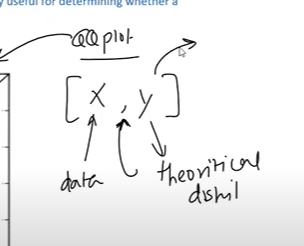 y useful for determining whether a
QQ plot
[x, y]
data
theoritical
distil